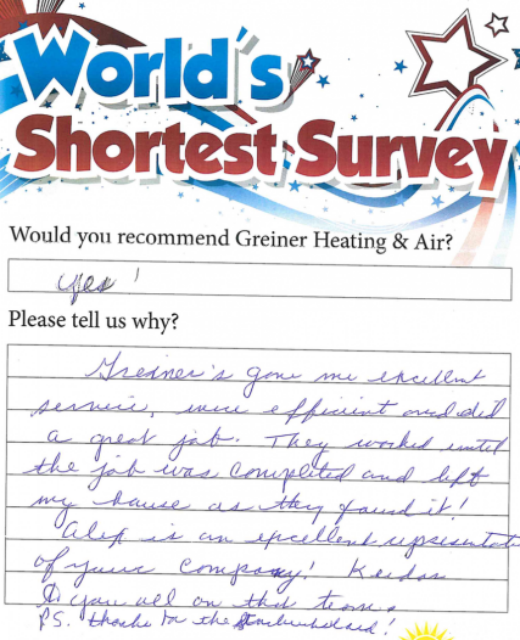 World's
Shortest Survey
Would you recommend Greiner Heating & Air?
yes!
Please tell us why?
Greiner's gave me excellent
service, were efficient and did
a great job. They worked until
the job was completed and left
my house as they found it!
Alex is an excellent representati
of your company! Kudos
to you all on that team.
P.S. thanks for the